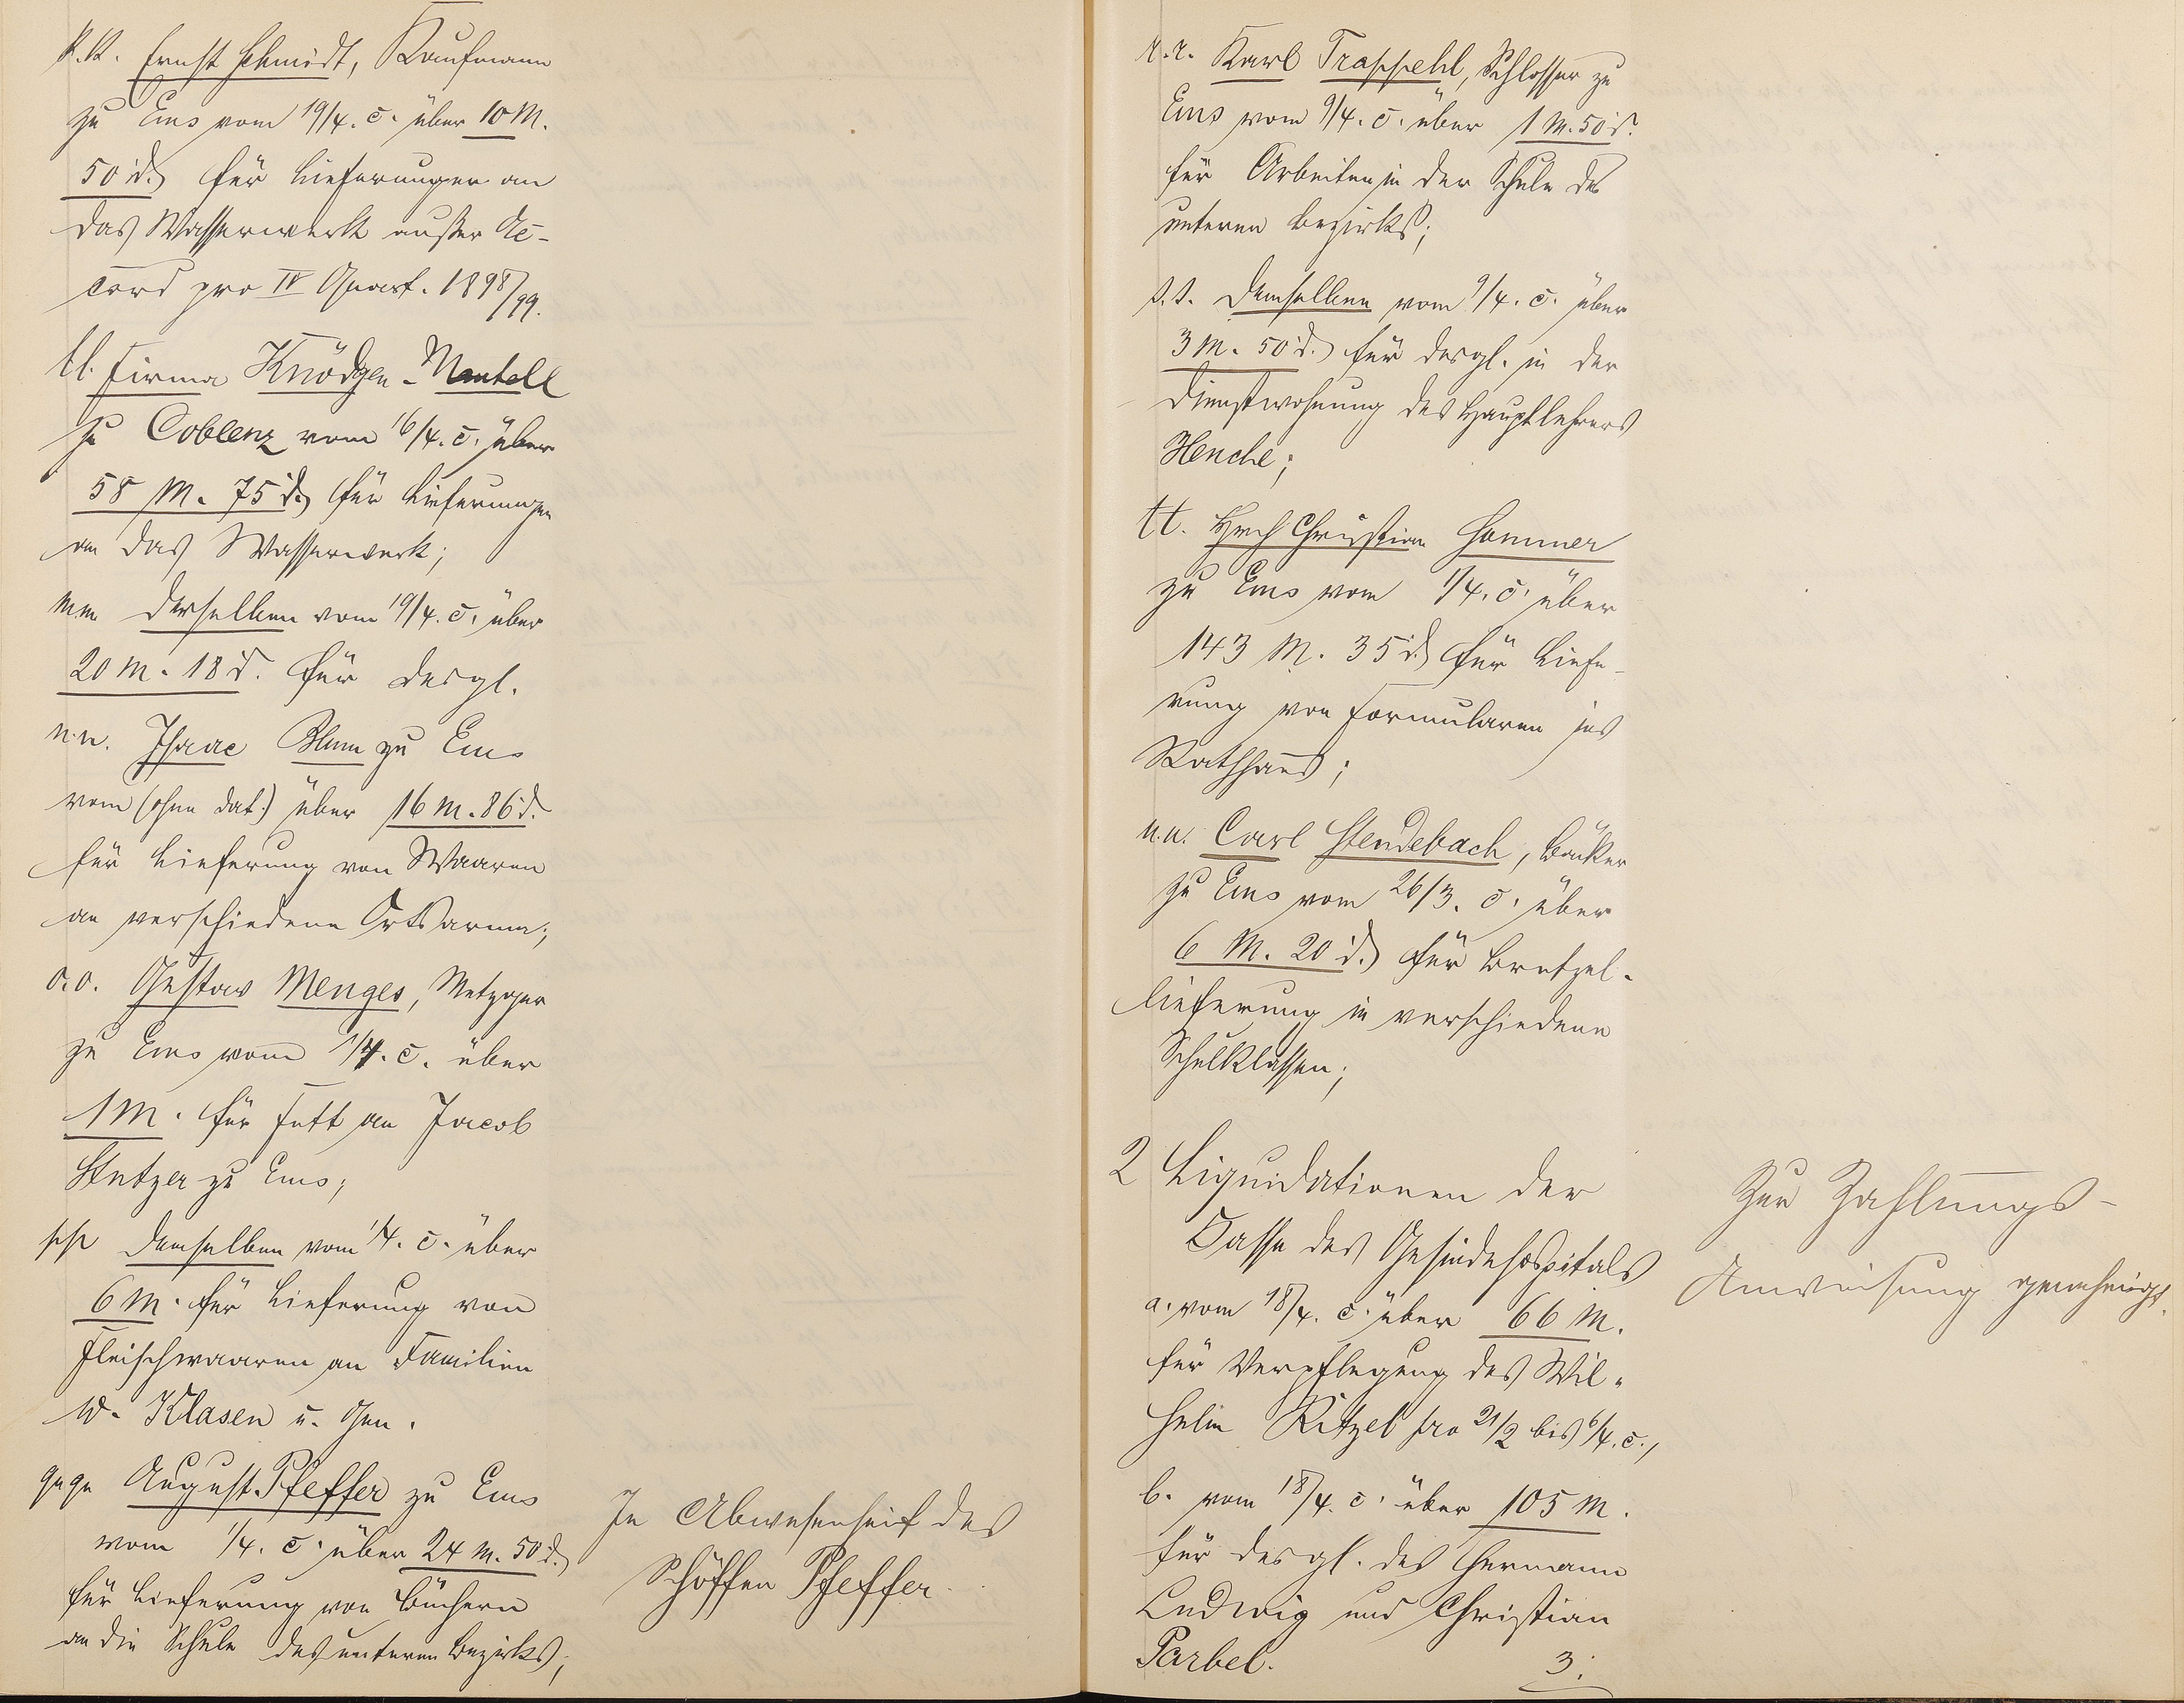 k.k. Ernst Schmidt, Kaufmann
zu Ems vom 19/4. c. über 10 M.
50 d. für Lieferungen an
das Wasserwerk außer Ac-
cord pro IV Quart. 1898/99.
ll. Firma Knödgen-Mantell
zu Coblenz vom 16/4. c. über
58 M. 75 d. für Lieferungen
an das Wasserwerk;
m.m. derselben vom 19/4. c. über
20 M. 18 d. für desgl.
n.n. Isaac Blum zu Ems
vom (ohne dat.) über 16 M. 86 d.
für Lieferung von Waaren
an verschiedene Ortsarme;
o.o. Gustav Menges, Metzger
zu Ems vom 1/4. c. über
1 M. für Fett an Jacob
Stutzer zu Ems;
pp demselben vom 1/4. c. über
6 M. für Lieferung von
Fleischwaaren an Familien
W. Klasen u. Gen.
qq August Pfeffer zu Ems
vom 1/4. c. über 24 M. 50 d.
für Lieferung von Büchern
an die Schule des unteren Bezirks;
In Abwesenheit des
Schöffen Pfeffer.
r.r. Karl Trappehl, Schlosser zu
Ems vom 9/4. c. über 1 M. 50 d.
für Arbeiten in der Schule des
unteren Bezirks;
s.s. demselben vom 9/4. c. über
3 M. 50 d. für desgl. in der
Dienstwohnung des Hauptlehrers
Henche;
tt. Hrch Christian Sommer
zu Ems vom 1/4. c. über
143 M. 35 d. für Liefe-
rung von Formularen ins
Rathhaus;
u.u. Carl Stendebach, Bäcker
zu Ems vom 26/3. c. über
6 M. 20 d. für Bretzel-
lieferung in verschiedene
Schulklassen;
2 Liquidationen der
Kasse des Gesindehospitals
a. vom 18/4. c. über 66 M.
für Verpflegung des Wil-
helm Ritzel pro 21/2 bis 6/4. c.,
b. vom 18/4. c. über 105 M.
für desgl. des Hermann
Ludwig und Christian
Parbel.
3.
Zur Zahlungs-
Anweisung genehmigt.